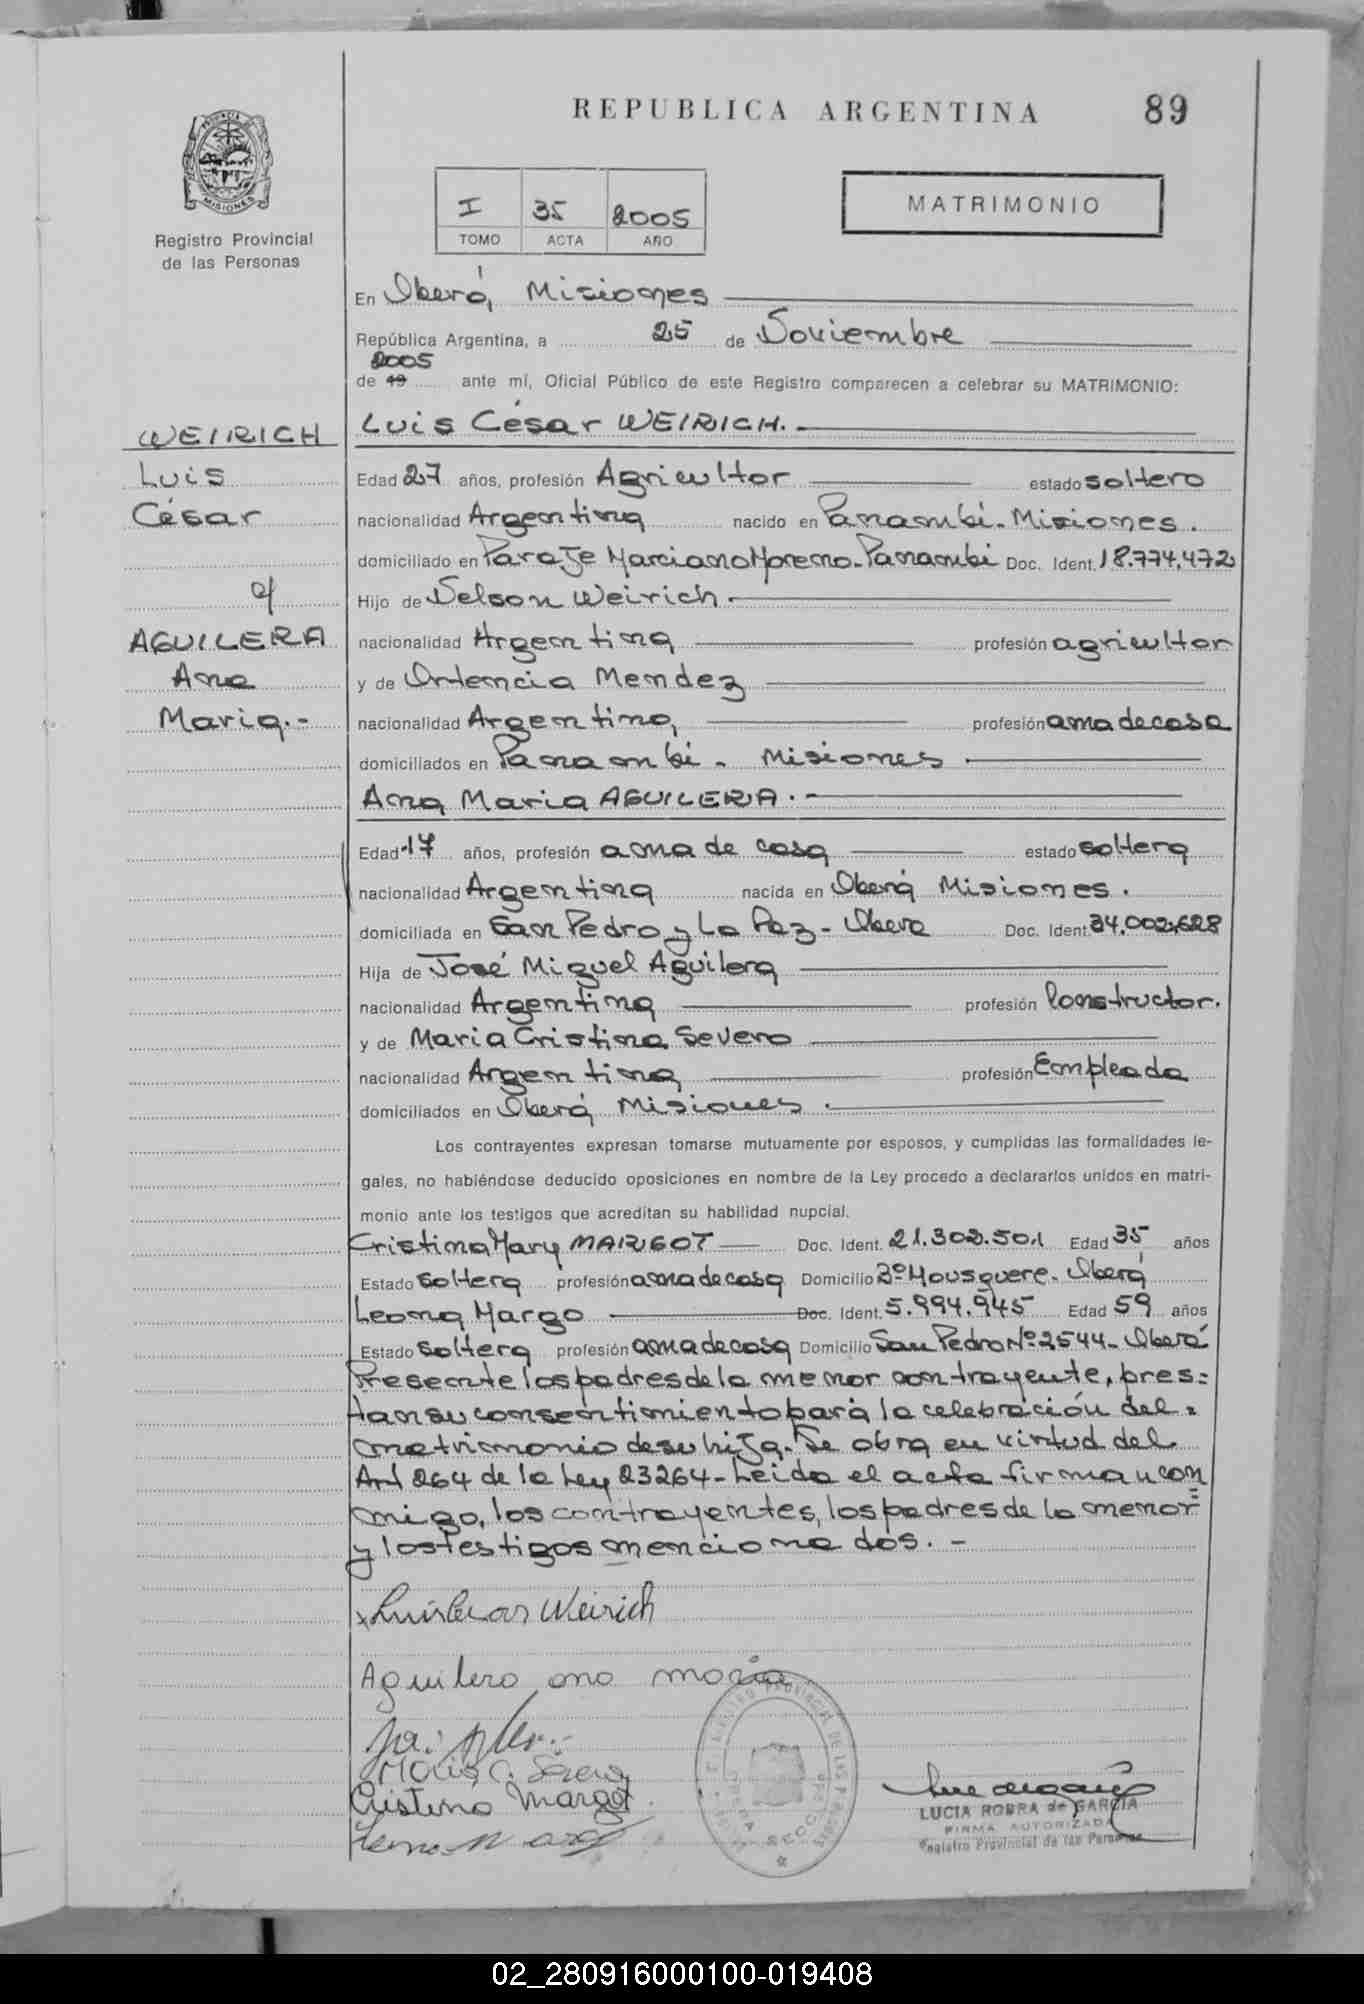 REPUBLICA ARGENTINA
89
PROVINCIA MISIONES
Registro Provincial
de las Personas
I 35 2005
TOMO ACTA AÑO
MATRIMONIO
En Oberá, Misiones
República Argentina, a 25 de Noviembre
2005
de 19 ante mí, Oficial Público de este Registro comparecen a celebrar su MATRIMONIO:
WEIRICH
Luis
César
c/
AGUILERA
Ana
Maria.-
Luis César WEIRICH.-
Edad 27 años, profesión Agricultor estado soltero
nacionalidad Argentina nacido en Panambi. Misiones.
domiciliado en Paraje Marciano Moreno. Panambi Doc. Ident. 18.774.472
Hijo de Nelson Weirich.
nacionalidad Argentina profesión agricultor
y de Ortencia Mendez
nacionalidad Argentina, profesión ama de casa
domiciliados en Panambi. Misiones
Ana Maria AGUILERA.-
Edad 17 años, profesión ama de casa estado soltera
nacionalidad Argentina nacida en Oberá Misiones.
domiciliada en San Pedro y La Paz - Obera Doc. Ident. 34.002.628
Hija de José Miguel Aguilera
nacionalidad Argentina profesión Constructor.
y de Maria Cristina Severo
nacionalidad Argentina, profesión Empleada
domiciliados en Oberá Misiones.
Los contrayentes expresan tomarse mutuamente por esposos, y cumplidas las formalidades le-
gales, no habiéndose deducido oposiciones en nombre de la Ley procedo a declararlos unidos en matri-
monio ante los testigos que acreditan su habilidad nupcial.
Cristina Mary MARGOT Doc. Ident. 21.302.501 Edad 35 años
Estado soltera profesión ama de casa Domicilio Bº Mousquere. Oberá
Leona Margo Doc. Ident. 5.994.945 Edad 59 años
Estado soltera profesión ama de casa Domicilio San Pedro Nº 2544 - Oberá
Presente los padres de la menor contrayente, pres=
tan su consentimiento para la celebración del=
matrimonio de su hija. Se obra en virtud del
Art 264 de la Ley 23264 - Leida el acta firman con
migo, los contrayentes, los padres de la menor=
y los testigos menciona dos. -
x Luis Cesar Weirich
Aguilera ana maria
Maria C. Severo
Cristina Margot
LUCIA ROBRA de GARCIA
FIRMA AUTORIZADA
Registro Provincial de las Personas
02_280916000100-019408